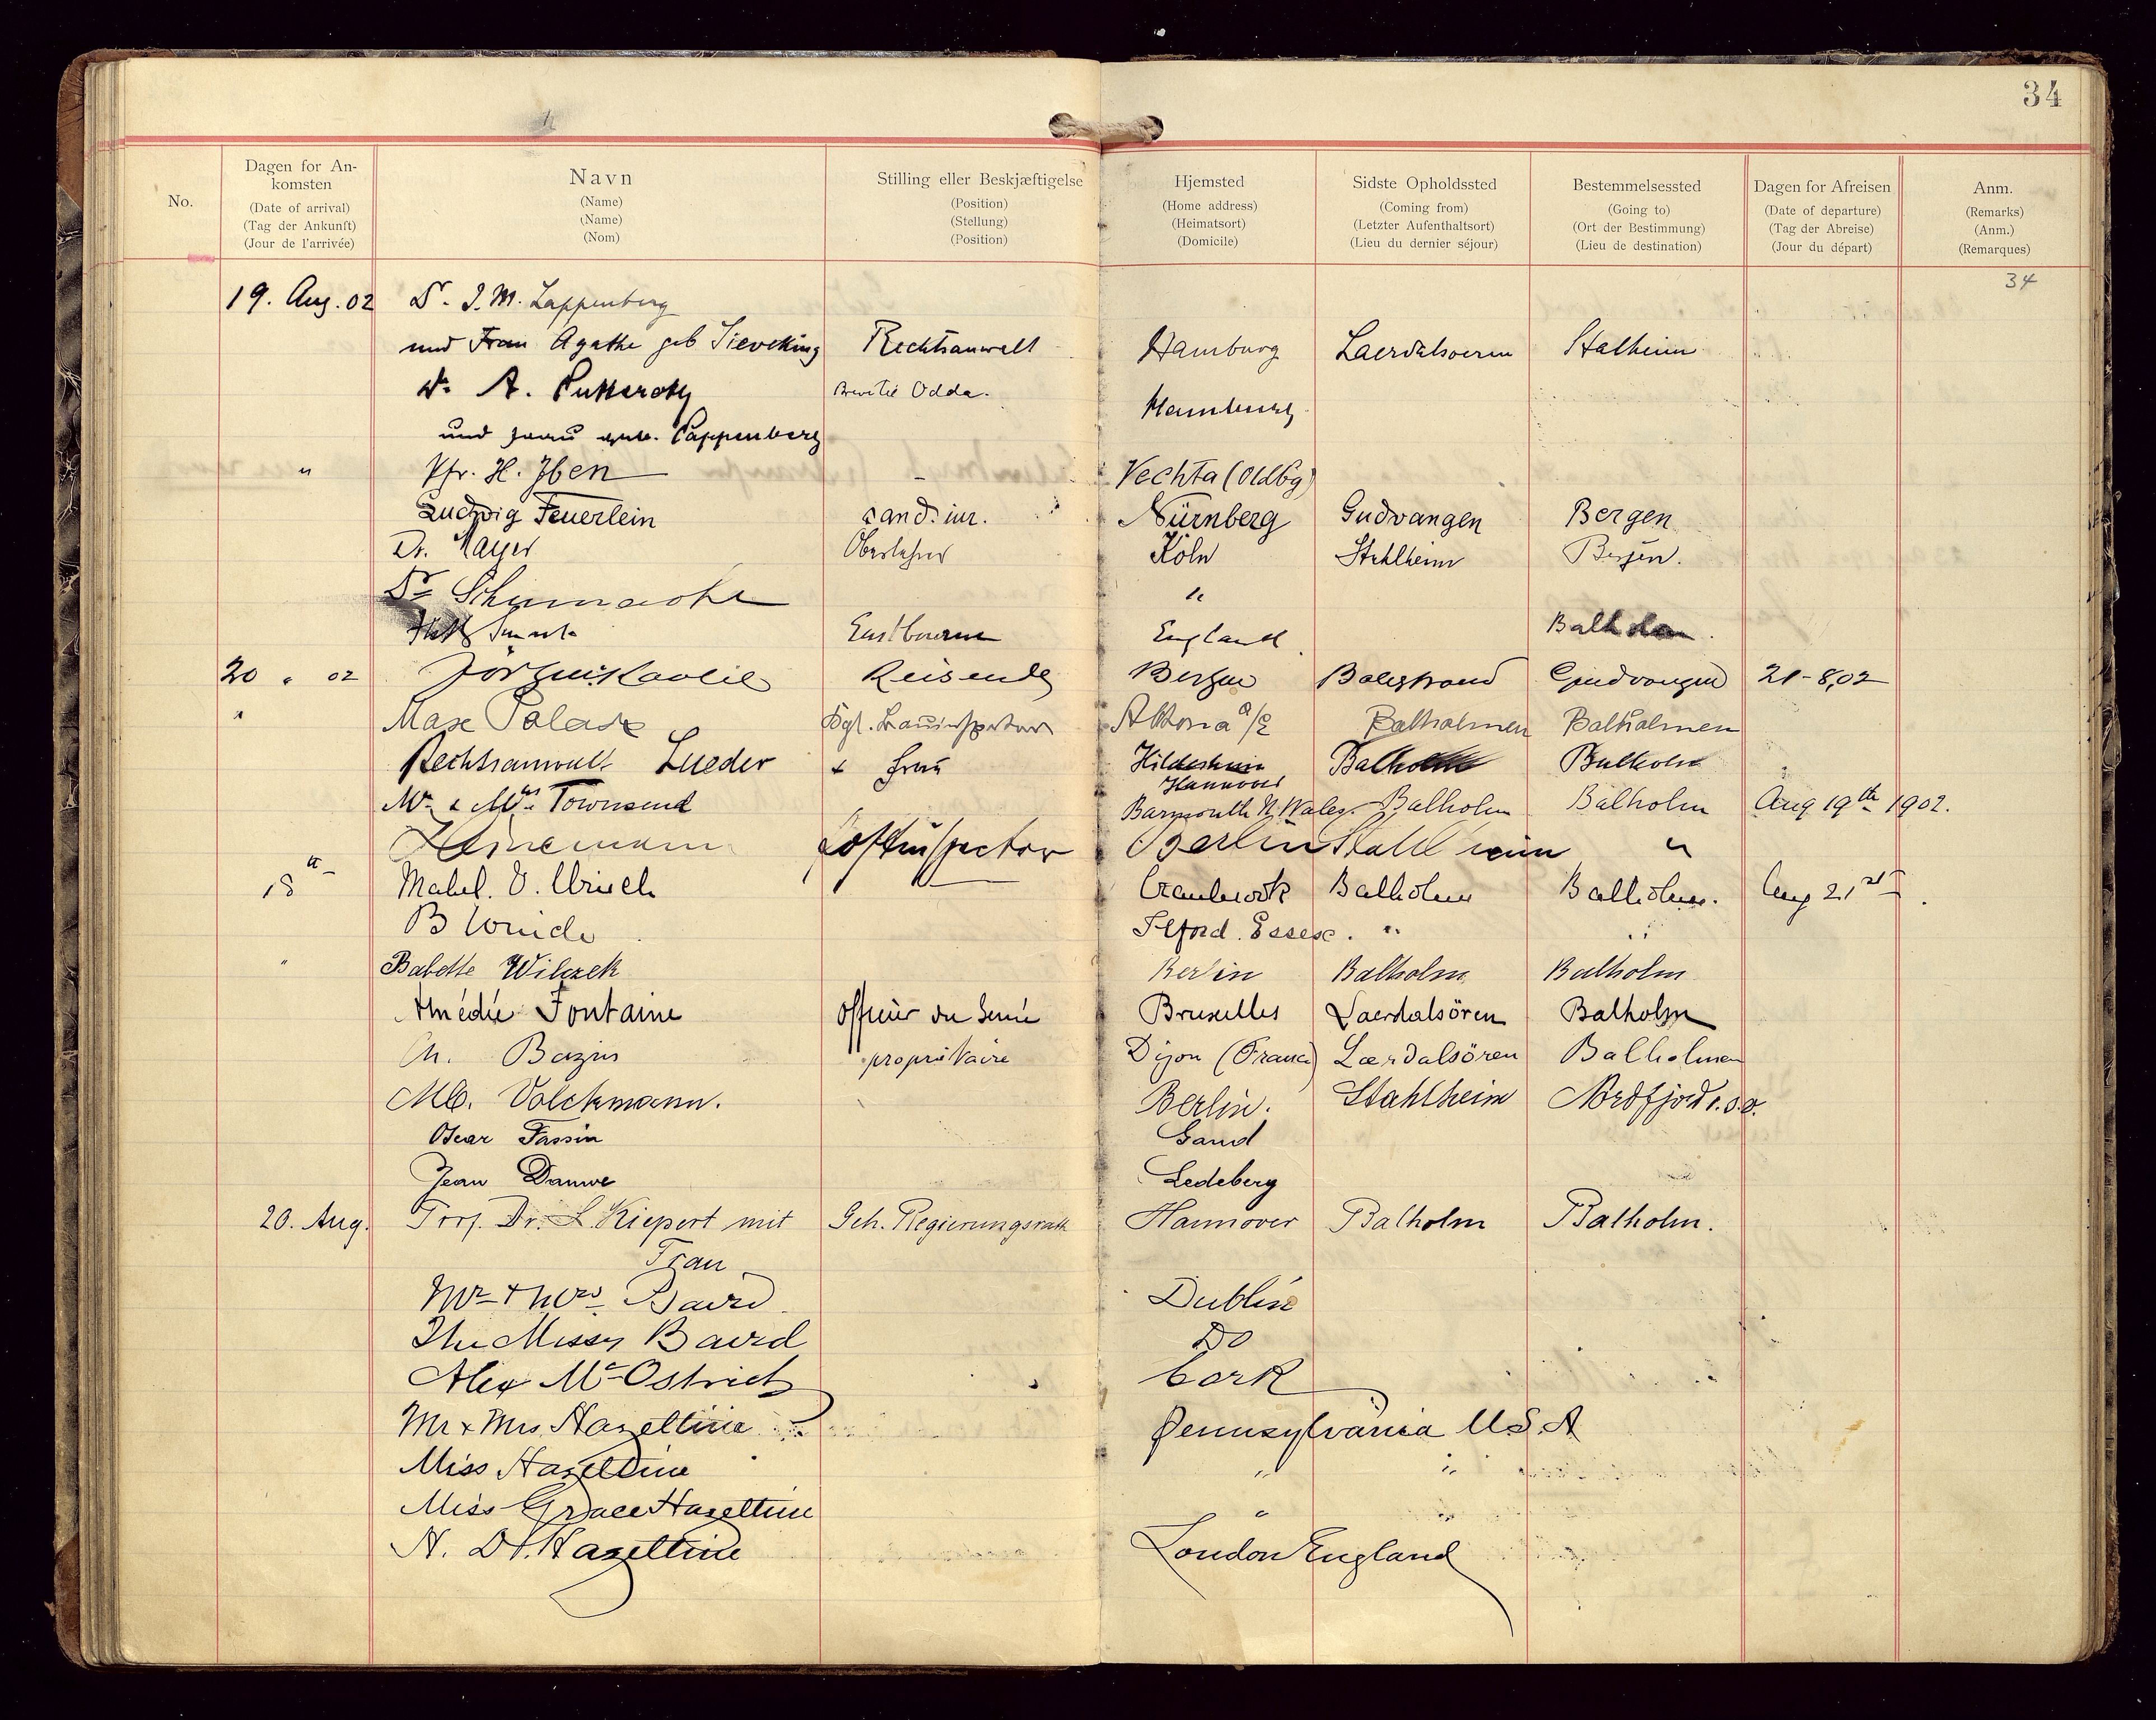 34
No.
Dagen for An-
komsten
(Date of arrival)
(Tag der Ankunft)
(Jour de l'arrivée)
Navn
(Name)
(Name)
(Nom)
Stilling eller Beskjæftigelse
(Position)
(Stellung)
(Position)
Hjemsted
(Home address)
(Heimatsort)
(Domicile)
Sidste Opholdssted
(Coming from)
(Letzter Aufenthaltsort)
(Lieu du dernier séjour)
Bestemmelsessted
(Going to)
(Ort der Bestimmung)
(Lieu de destination)
Dagen for Afreisen
(Date of departure)
(Tag der Abreise)
(Jour du départ)
Anm.
(Remarks)
(Anm.)
(Remarques)
34
19. Aug. 02 Dr. J. M. Lappenberg
und Frau Agathe geb Sieveking Rechtsanwalt Hamburg Laerdalsoeren Stalheim
Dr. A. Odda. Hamburg
und Frau geb. Lappenberg
" Pfr. H. Iben Vechta (Oldbg)
Ludwig Feuerlein cand. iur. Nürnberg Gudvangen Bergen
Dr. Mayer Oberlehrer Köln Stahlheim Bergen.
Dr. "
Eastbourne England Balholm
20 " 02 Reisende Bergen Balestrand Gudvangen 21-8,02
" Max Kgl. Altona a/E Balholmen Balholmen
Rechtsanwalt Lueder + Frau Hildesheim Balholm Balholm
Hannover
Mr. & Mrs. Townsend Barmouth N. Wales. Balholm Balholm Aug 19th 1902.
Heinemann Berlin Stahlheim "
18 Mabel. Cranbrook Balholm Balholm. Aug 21st
B Ilford. Essex. " "
" Babette Wilczek Berlin Balholm Balholm
Amédée Fontaine officier du Génie Bruxelles Laerdalsören Balholm
Ch. Bazin propriétaire Dijon (France) Lærdalsören Balholmen
Volckmann. Berlin. Stahlheim Nordfjord
Oscar Fassin Gand
Jean Danwe Ledeberg
20. Aug. Prof. Dr. L. Kiepert mit Geh. Regierungsrath Hannover Balholm Balholm.
Frau
Mr & Mrs Baird Dublin
The Misses Baird Do
Alex McOstrich Cork
Mr & Mrs Hazeltine Pennsylvania U.S.A
Miss Hazeltine " "
Miss Grace Hazeltine " "
H. D. Hazeltine London England